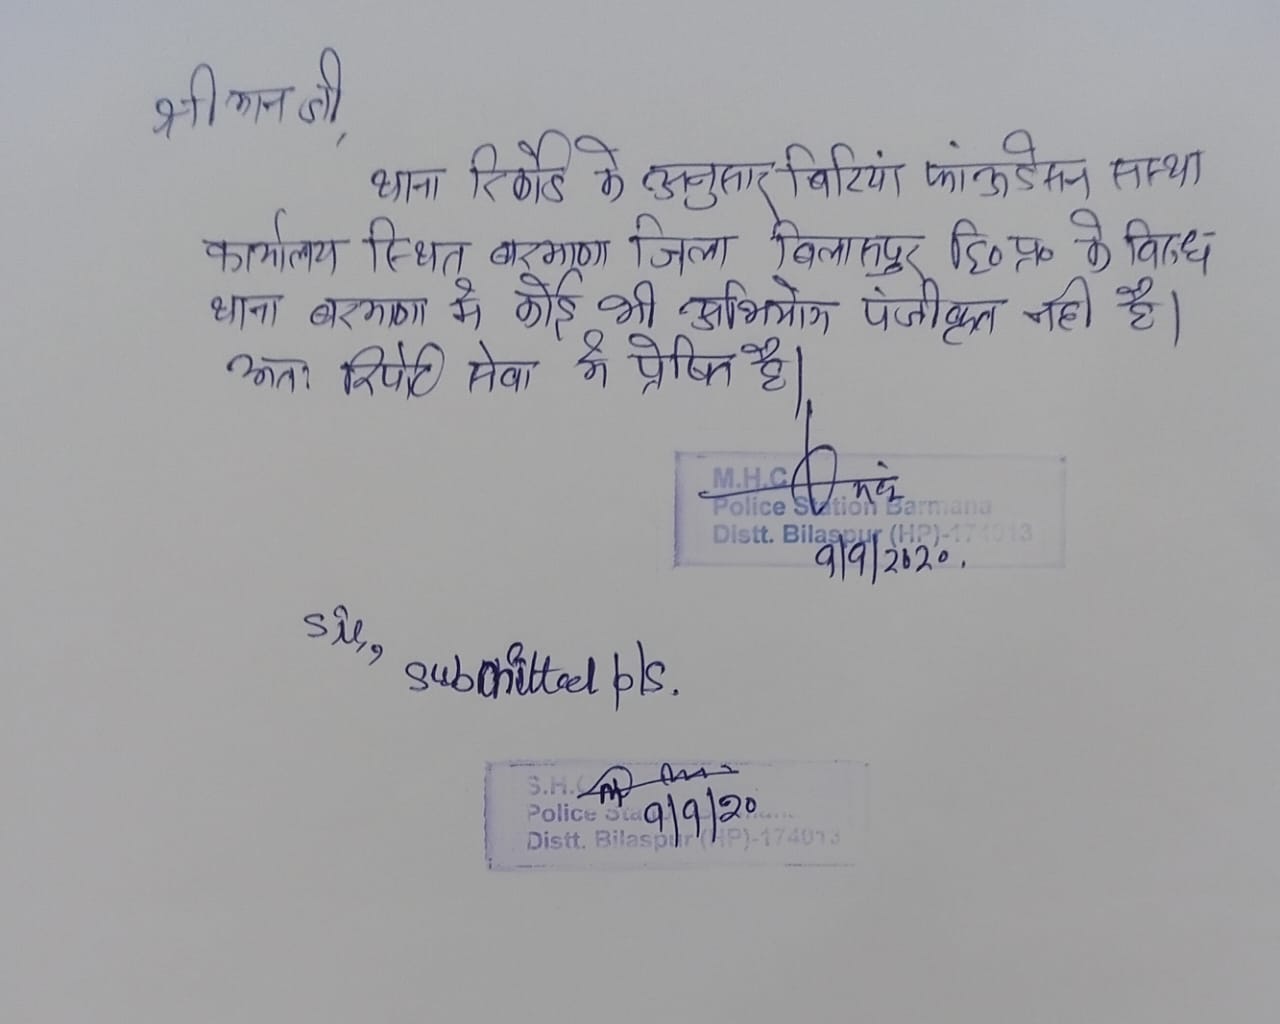 श्रीमान जी,
थाना रिकॉर्ड के अनुसार बिटियां फांऊडेसन सस्था
कार्यालय स्थित बरमाणा जिला बिलासपुर हि०प्र० के विरुध
थाना बरमाणा में कोई भी अभियोग पंजीकृत नही है।
अतः रिपोर्ट सेवा में प्रेषित है।
M.H.C
Police Station Barmana
Distt. Bilaspur (HP)-174013
9/9/2020.
Sir,,
Submitted pls.
S.H.
Police Sta
9/9/20
Distt. Bilaspur (HP)-174013